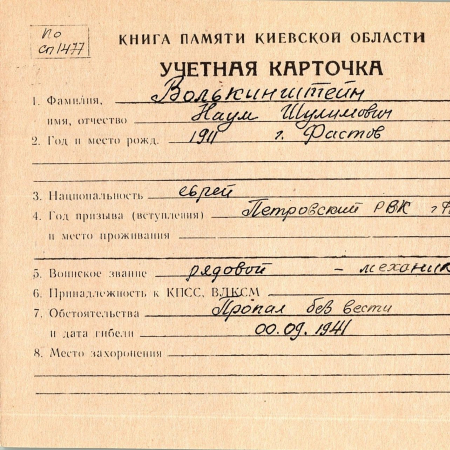 По
сп1477
КНИГА ПАМЯТИ КИЕВСКОЙ ОБЛАСТИ
УЧЕТНАЯ КАРТОЧКА
1. Фамилия, Волькинштейн
имя, отчество Наум Шулимович
2. Год и место рожд. 1911 г. Фастов
3. Национальность еврей
4. Год призыва (вступления) Петровский РВК г.
и место проживания
5. Воинское звание рядовой - механик
6. Принадлежность к КПСС, ВЛКСМ
7. Обстоятельства Пропал без вести
и дата гибели 00.09.1941
8. Место захоронения